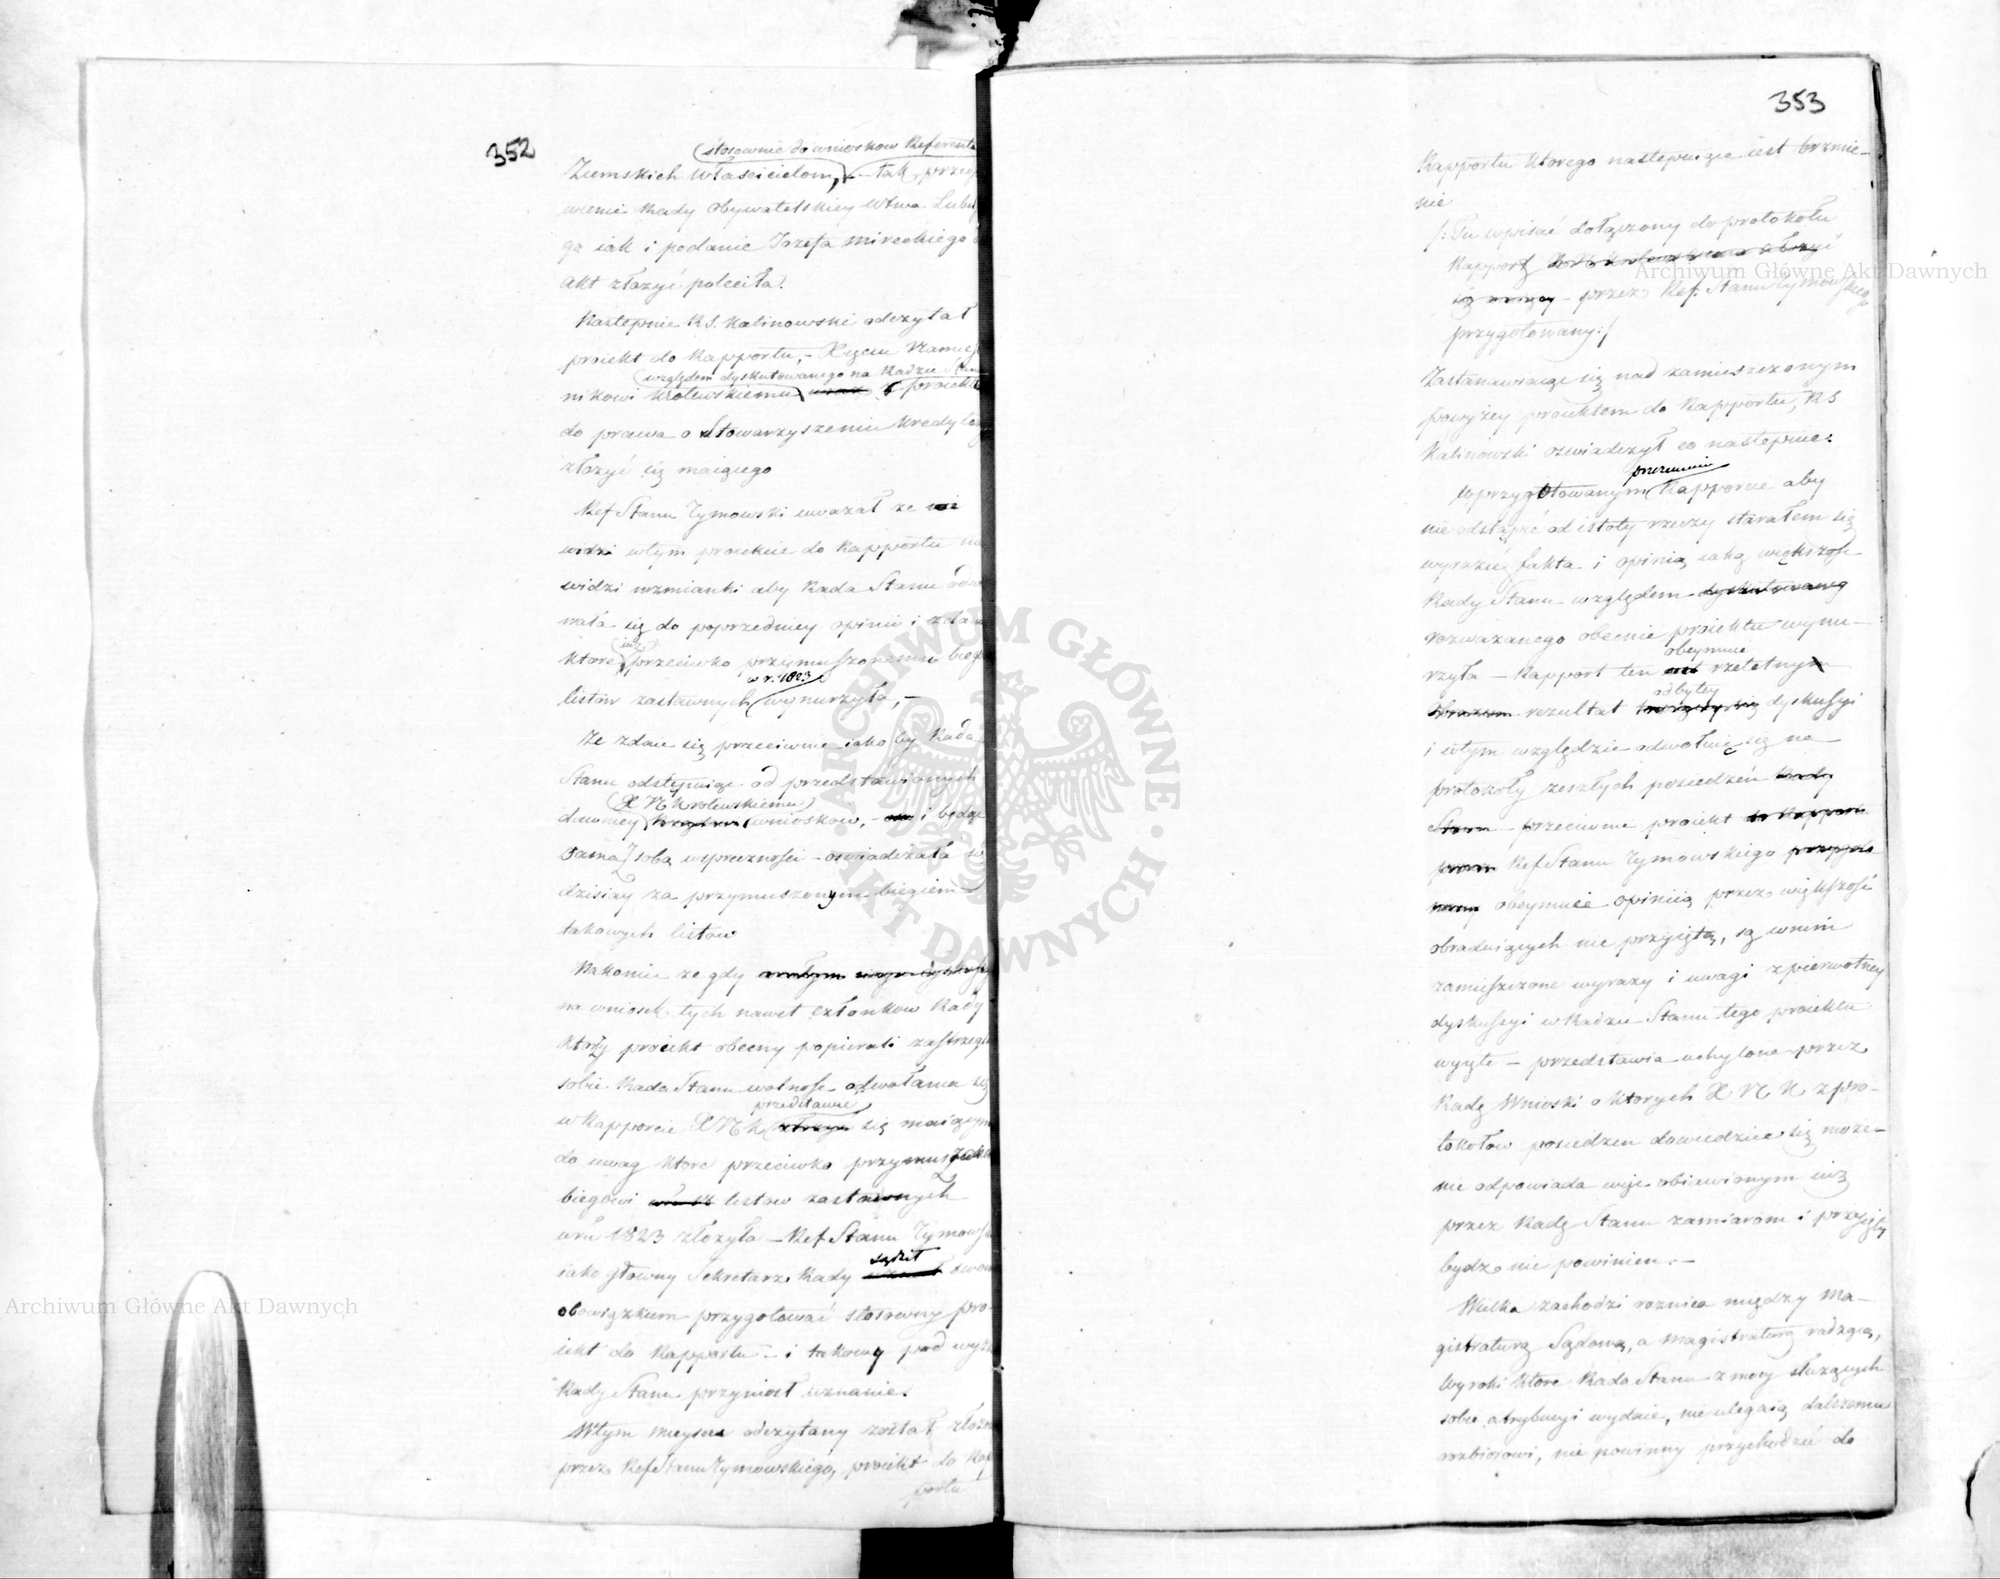 352
stosownie do wniosków Referenta
Ziemskich właścicielom, – tak przeds
wienie Rady Obywatelskiey Wtwa Lubel
go iak i podanie Jozefa Mireckiego
akt złożyć poleciła.
Następnie R.S. Kalinowski odczytał
proiekt do Rapportu, – Xięciu Namies
względem dyskutowanego na Radzie Stanu
nikowi Królewskiemu proiektu
do prawa o Stowarzyszeniu kredytow
złożyć się maiącego
Ref Stanu Tymowski uważał że nie
widzi wtym proiekcie do Rapportu
widzi wzmianki aby Rada Stanu odwo
wała się do poprzedniey opinii i zdania
iuż
które przeciwko przymuszonemu biego
w r. 1823
listów zastawnych wynurzyła, –
Że zdaie się przeciwnie iako by Rada
Stanu odstępuiąc od przedstawionych
X N Królewskiemu
dawniey wniosków, – i będąc
sama z sobą wsprzeczności – oświadczała się
dzisiay za przymuszonym biegiem
takowych listów
Nakoniec że gdy
na wniosek tych nawet członków Rady
którzy proiekt obecny popierali zastrzegła
sobie Rada Stanu wolność odwołania się
przedstawić
w Rapporcie X N K się maiącym
do uwag które przeciwko przymuszonemu
biegowi listów zastawnych
w ru 1823 złożyła – Ref Stanu Tymowski
sądził
iako główny Sekretarz Rady swoim
obowiązkiem przygotować stosowny pro-
iekt do Rapportu – i takowy pod wyższe
Rady Stanu przyniosł uznanie.
Wtym mieyscu odczytany został złożony
przez Ref Stanu Tymowskiego, proiekt do Rap
portu
353
Rapportu którego następuiące iest brzmie-
nie
/: Tu wpisać dołączony do protokołu
Rapport
przez Ref. Stanu Tymowskiego
przygotowany :/
Zastanawiaiąc się nad zamieszczonym
powyżey proiektem do Rapportu, RS
Kalinowski oświadczył co następuie.
przezemnie
W przygotowanym Rapporcie aby
nie odstąpić od istoty rzeczy starałem się
wyrazić fakta i opinią iaką większość
Rady Stanu względem dyskutowaneg
rozważanego obecnie proiektu wynu-
obeymuie
rzyła – Rapport ten rzetelny
odbytey
obrazem rezultat dyskussyi
i wtym względzie odwołuię się na
protokóły zeszłych posiedzeń Rady
Stanu – przeciwnie proiekt do Rapportu
przez Ref Stanu Tymowskiego przygoto
wany obeymuie opinią przez większość
obraduiących nie przyiętą, są w nim
zamieszczone wyrazy i uwagi z pierwotney
dyskussyi w Radzie Stanu tego proiektu
wyięte – przedstawia uchylone przez
Radę Wnioski o których X N K z pro-
tokółów posiedzeń dowiedzieć się może –
nie odpowiada więc obiawionym iuż
przez Radę Stanu zamiarom i przyięty
bydź nie powinien. –
Wielka zachodzi różnica między Ma-
gistraturą Sądową, a magistraturą radzącą,
Wyroki które Rada Stanu z mocy służących
sobie atrybucyi wydaie, nie ulegaią dalszemu
rozbiorowi, nie powinny przychodzić do
Archiwum Główne Akt Dawnych
Archiwum Główne Akt Dawnych
ARCHIWUM GŁÓWNE · AKT DAWNYCH ·